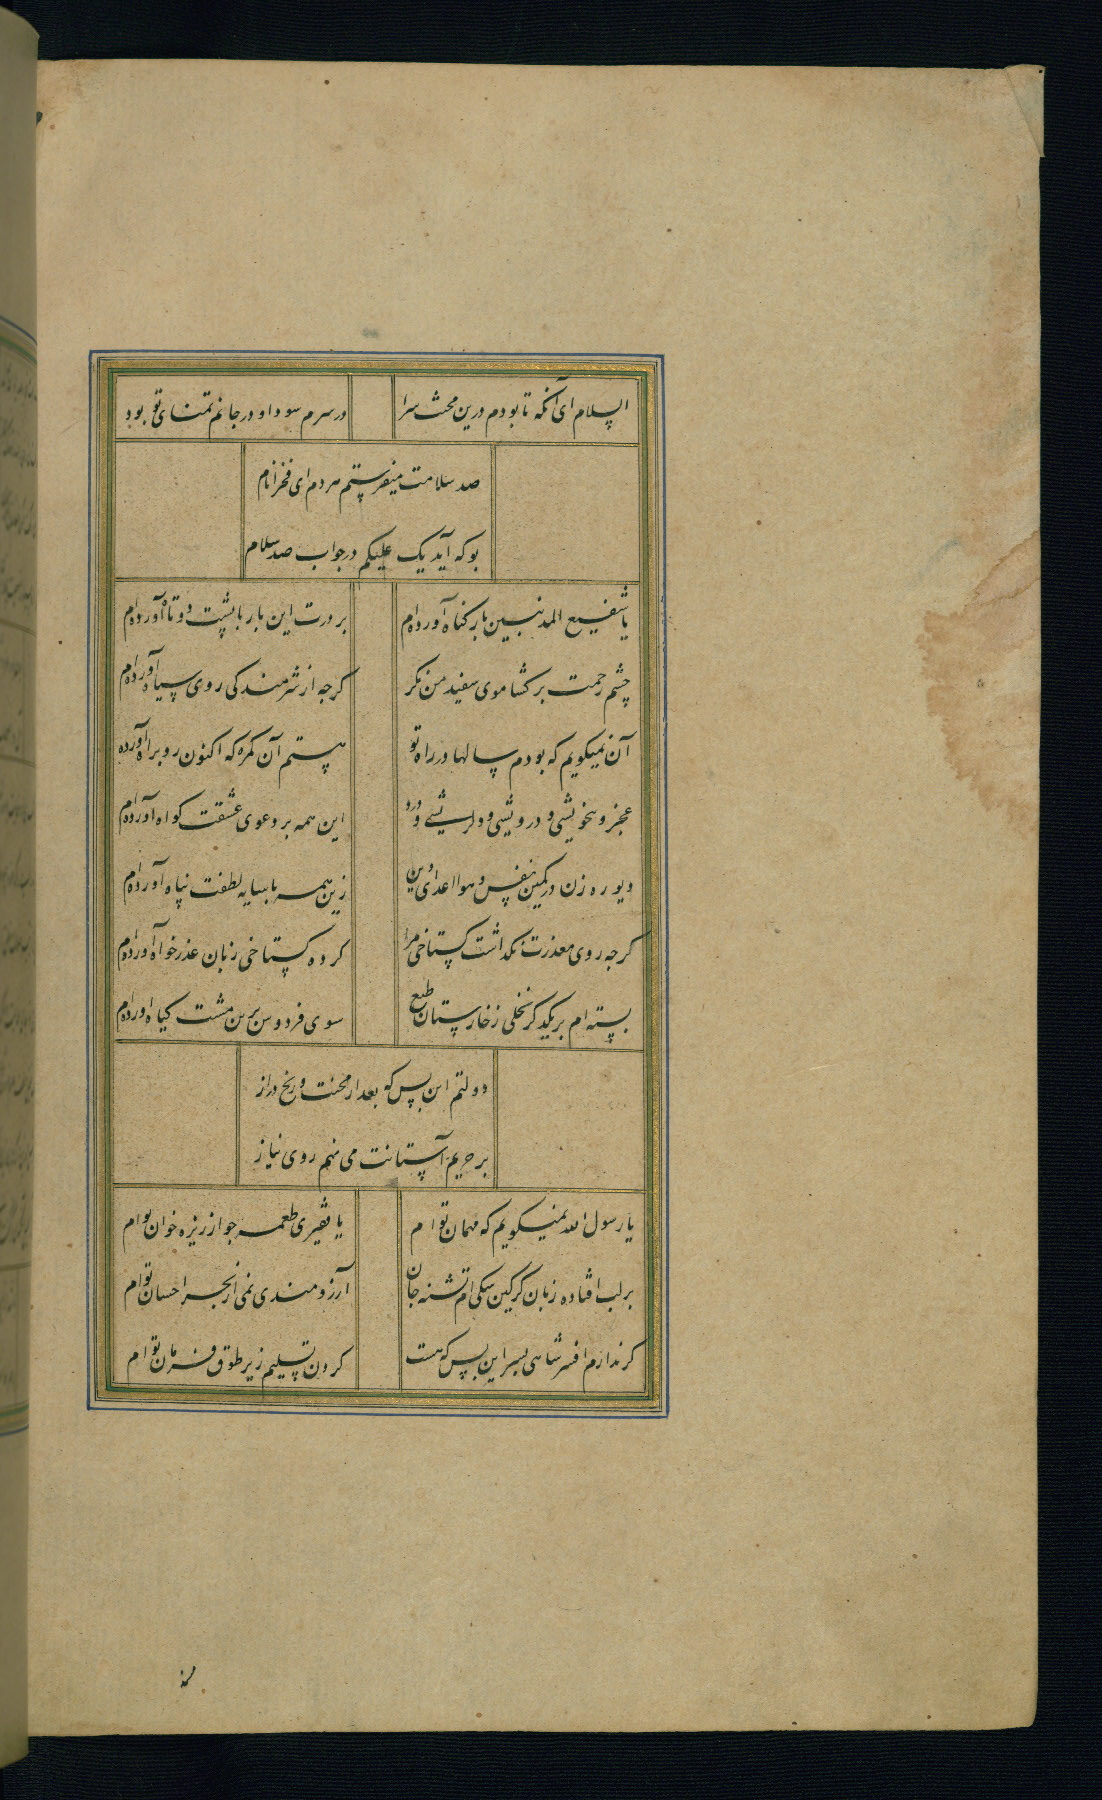 السلام ای آنکه تا بودم درین محنت سرا
در سرم سودا و در جانم تمنای تو بود
صد سلامت میفرستم هر دم ای فخر انام
بو که آید یک علیکم در جواب صد سلام
یا شفیع المذنبین بار کناه آورده ام
بر درت این بار با پشت دوتاه آورده ام
چشم رحمت بر کشا موی سفید من نکر
کرچه از شرمندکی روی سیاه آورده ام
آن نمیکویم که بودم سالها در راه تو
هستم آن کمره که اکنون رو براه آورده
عجز و بیخویشی و درویشی و دلریشی و درد
این همه بر دعوی عشقت کواه آورده ام
دیو ره زن در کمین نفس و هوا اعدای دین
زین همه با سایه لطفت پناه آورده ام
کرچه روی معذرت نکذاشت کستاخی مرا
کرده کستاخی زبان عذر خواه آورده ام
بسته ام بر یکدکر نخلی ز خارستان طبع
سوی فردوس برین مشت کیاه آورده ام
دولتم این بس که بعد از محنت و رنج دراز
بر حریم آستانت می نهم روی نیاز
یا رسول الله نمیکویم که مهمان توام
یا فقیری طعمه جو از ریزه خوان توام
بر لب افتاده زبان کرکین سکی ام تشنه جان
آرزومندی نمی از بحر احسان توام
کر ندارم افسر شاهی بسر این بس که هست
کردن تسلیم زیر طوق فرمان توام